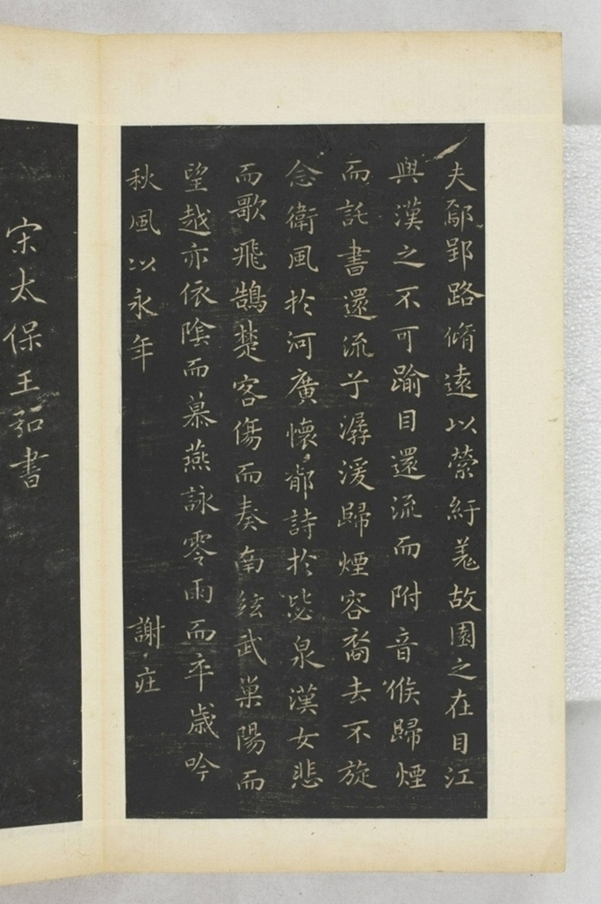 夫鄢郢路脩遠以縈紆羌故園之在目江
與漢之不可踰目還流而附音候歸煙
而託書還流兮潺湲歸煙容裔去不旋
念衛風於河廣懷鄁詩於毖泉漢女悲
而歌飛鵠楚客傷而奏南絃武巢陽而
望越亦依陰而慕燕詠零雨而卒歲吟
秋風以永年 謝莊
宋太保王弘書